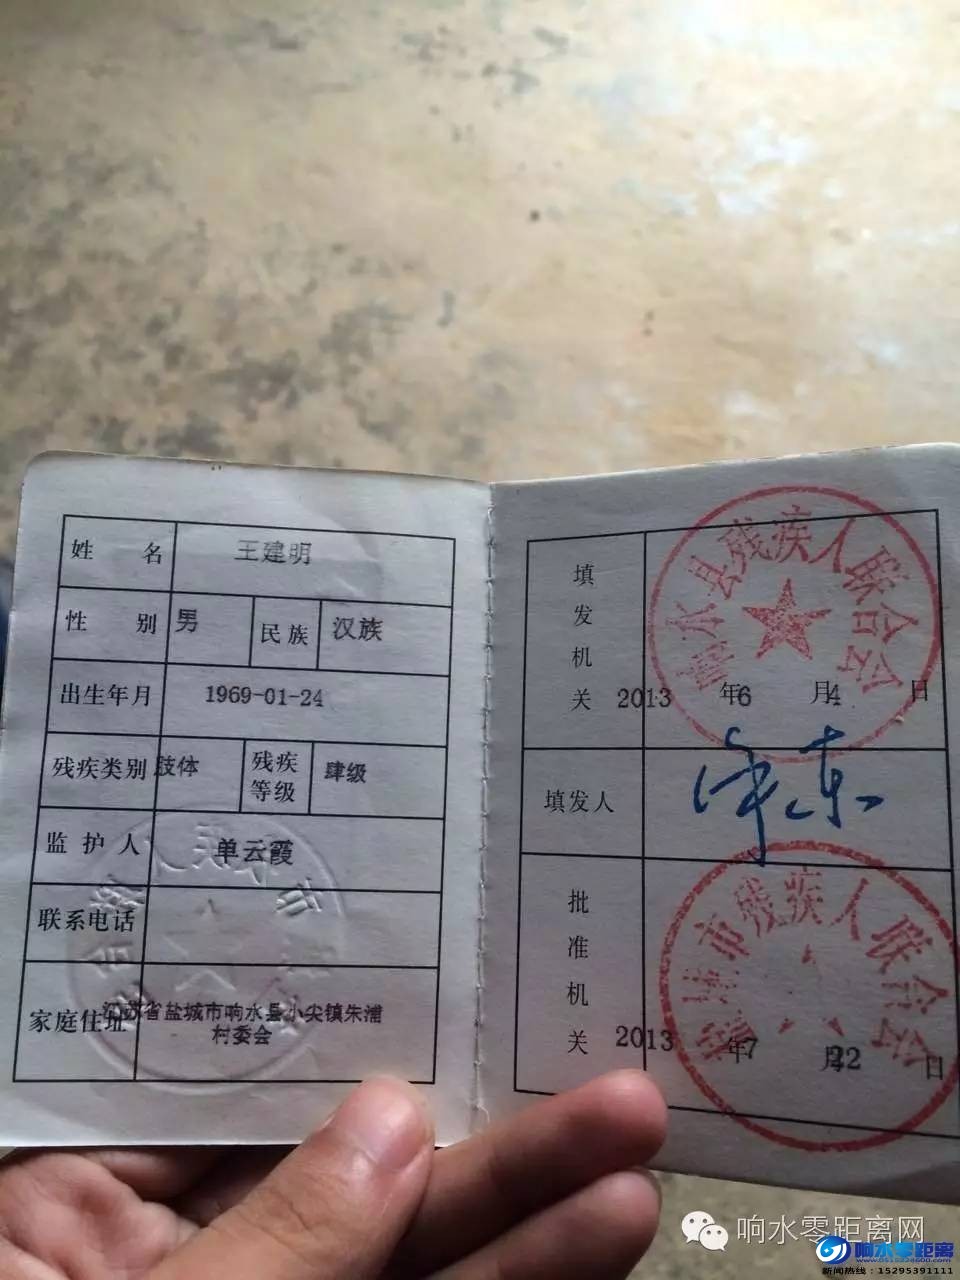 姓 名 王建明
性 别 男 民族 汉族
出生年月 1969-01-24
残疾类别 肢体 残疾等级 肆级
监护人 单云霞
联系电话
家庭住址 江苏省盐城市响水县小尖镇朱浦
村委会
响水县残疾人联合会
填发机关 2013 年6 月4 日
填发人
盐城市残疾人联合会
批准机关 2013 年7 月22 日
响水零距离网
响水零距离
新闻热线：15295391111